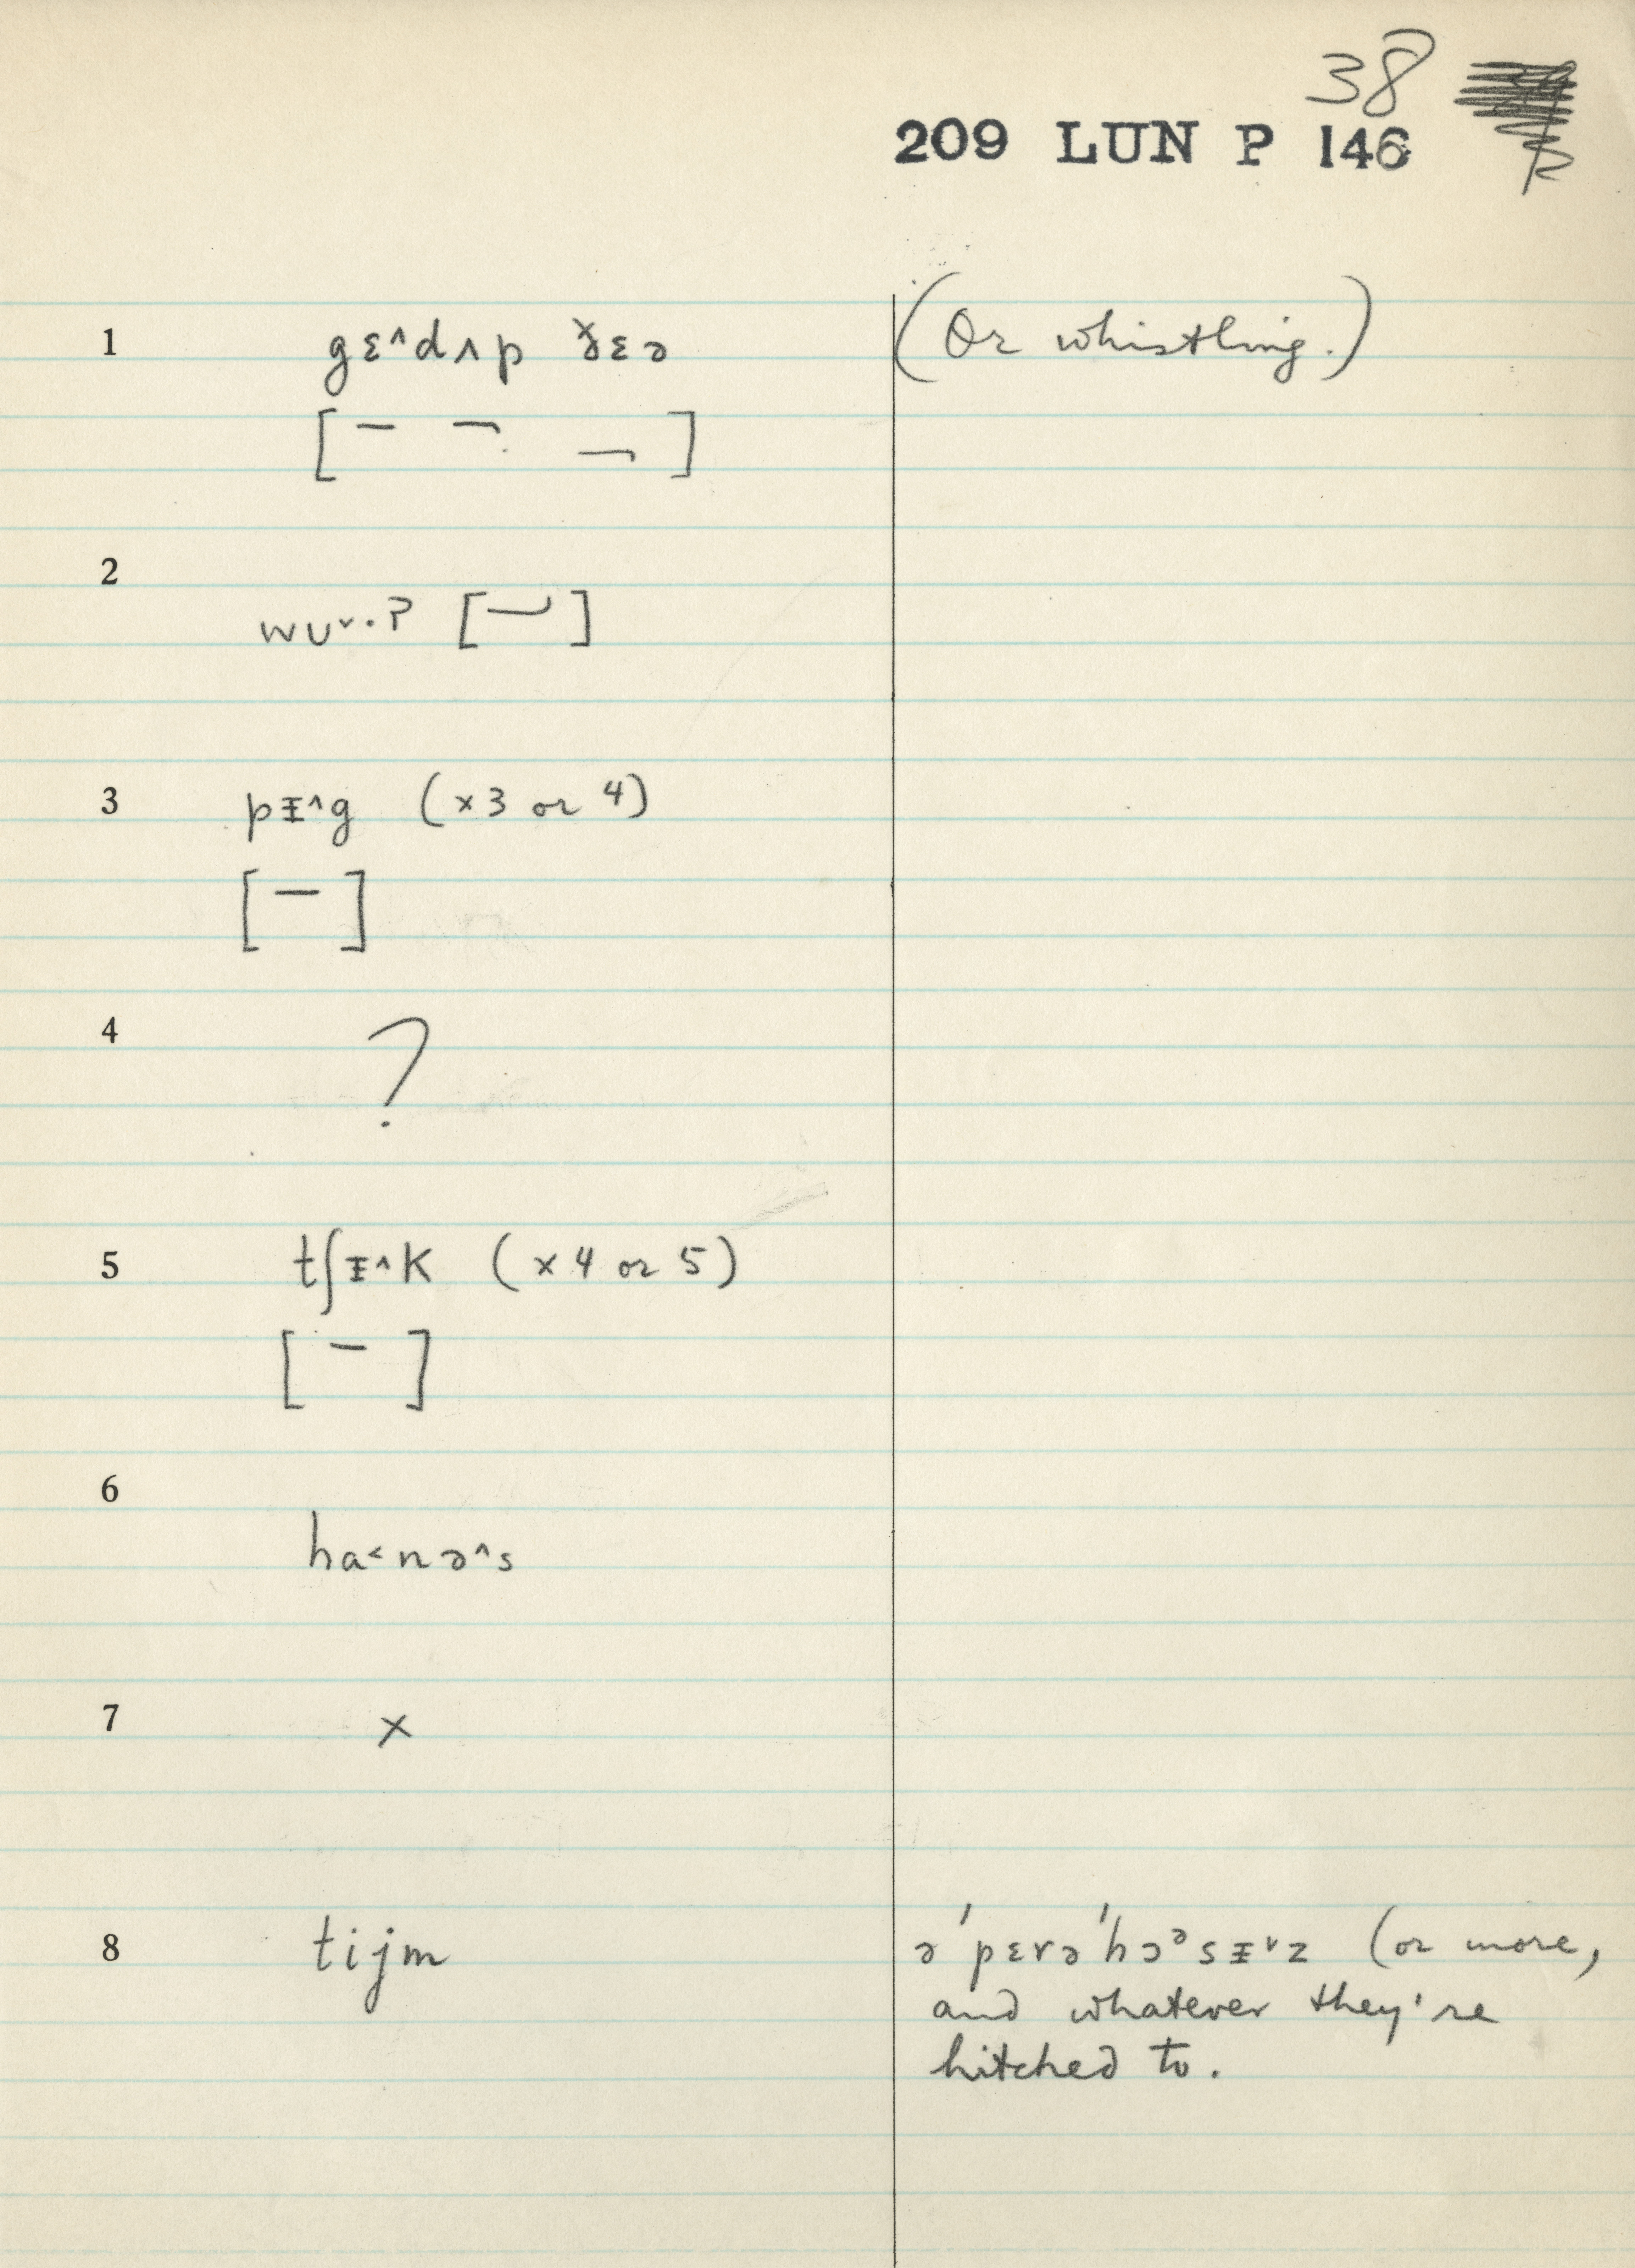 38
209 LUN P 146
1 gɛ^dʌp ðɛə (Or whistling.)
[ ]
2
wʊ˅·ʔ [ ]
3 pɪ^g (×3 or 4)
[ – ]
4 ?
5 tʃɪ^k (×4 or 5)
[ – ]
6
ha<nə^s
7 ×
8 tijm ə'pɛrə'hɔᵊsɪ˅z (or more,
and whatever they're
hitched to.